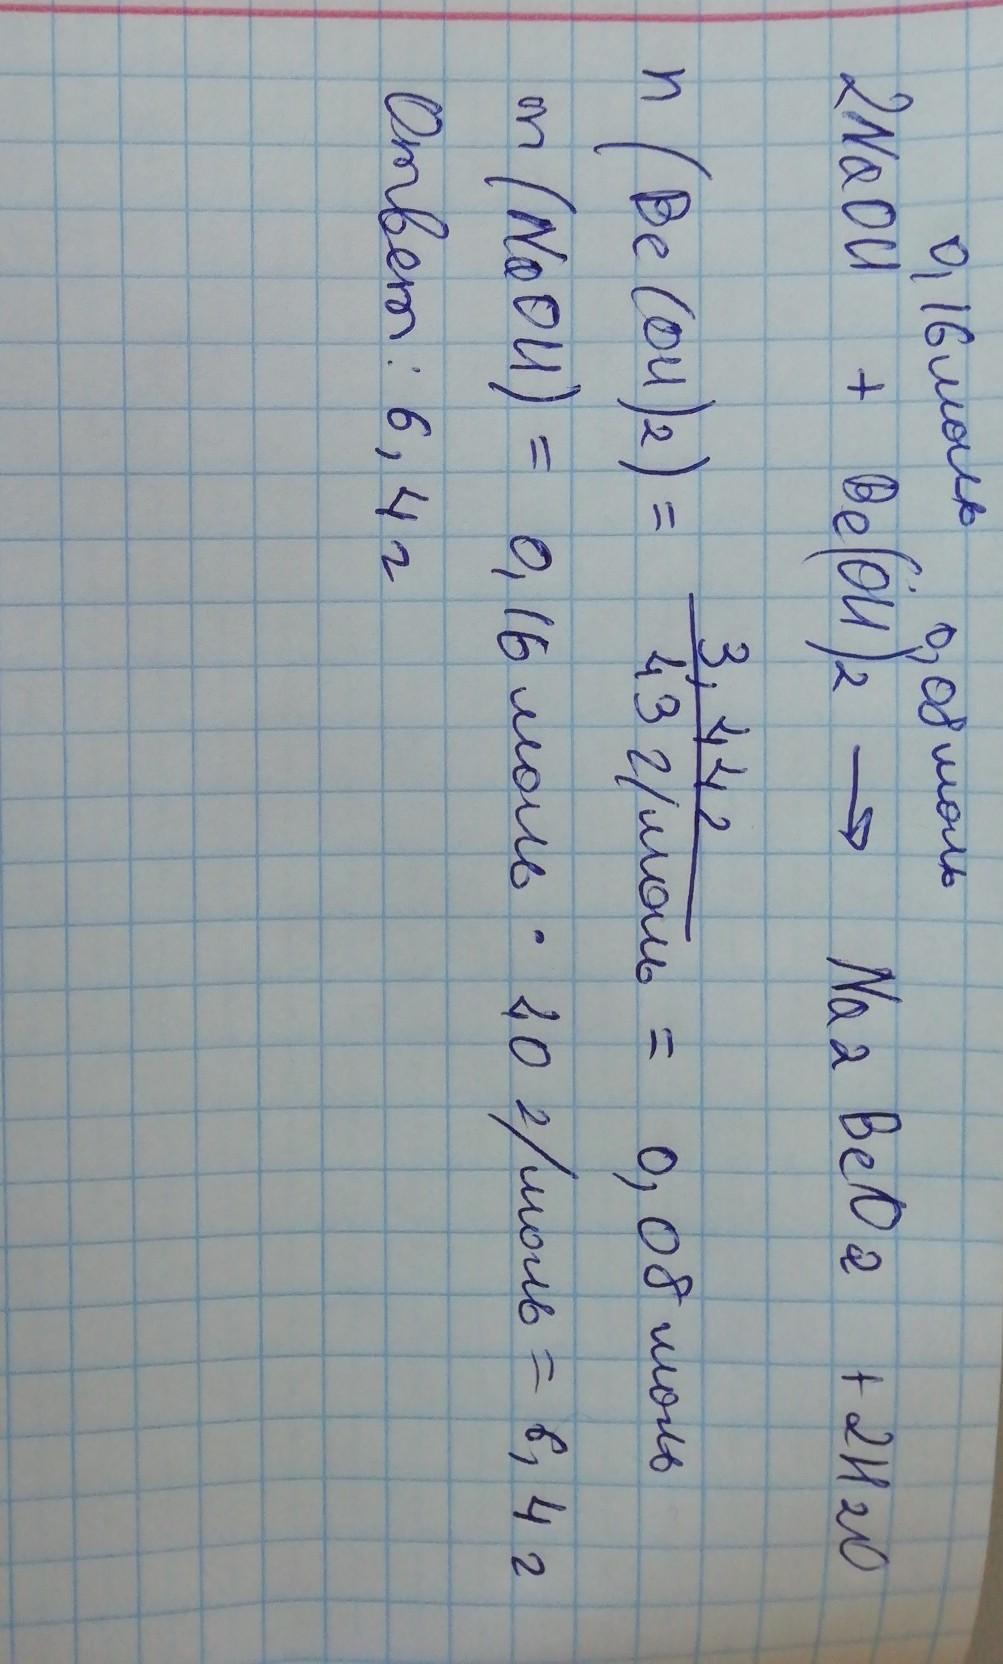 0,16 моль 0,08 моль
2NaOH + Be(OH)2 → Na2BeO2 + 2H2O
n(Be(OH)2) = 3,44г / 43 г/моль = 0,08 моль
m(NaOH) = 0,16 моль · 40 г/моль = 6,4 г
Ответ: 6,4 г